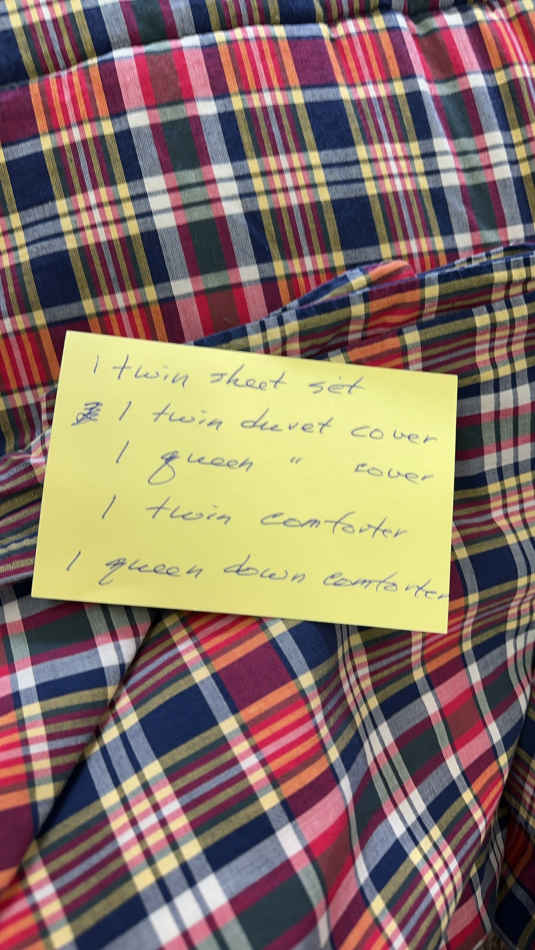 1 twin sheet set
1 twin duvet cover
1 queen " cover
1 twin comforter
1 queen down comforter